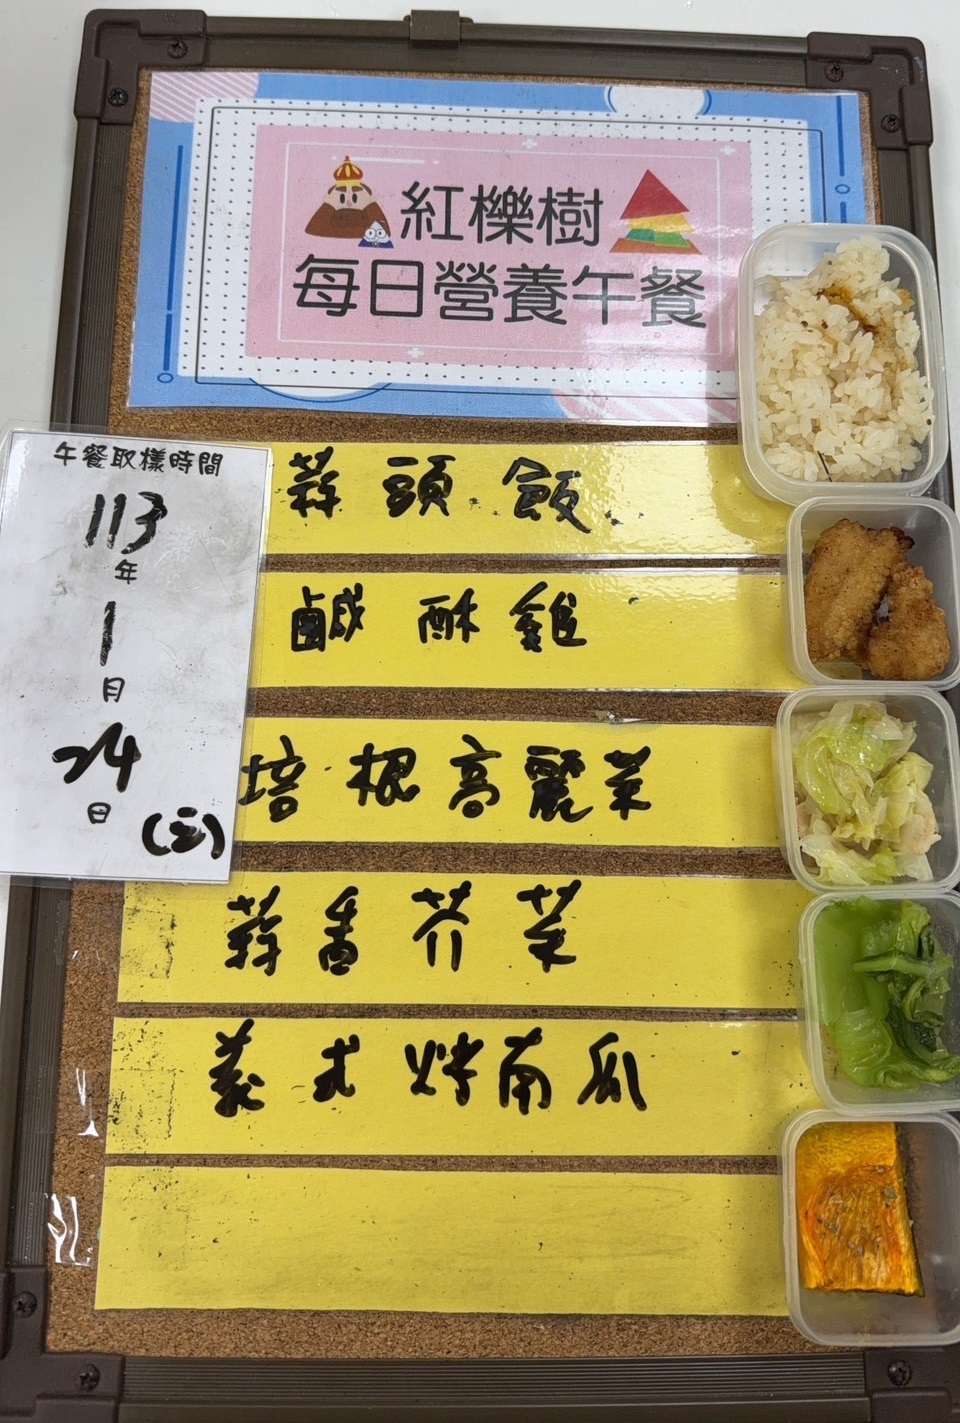 紅櫟樹
每日營養午餐
午餐取樣時間
113
年
1
月
24
日
(三)
蒜頭飯
鹹酥雞
培根高麗菜
蒜香芥菜
義式烤南瓜